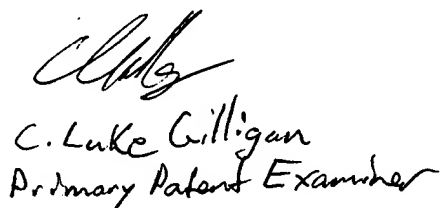 C. Luke Gilligan
Primary Patent Examiner